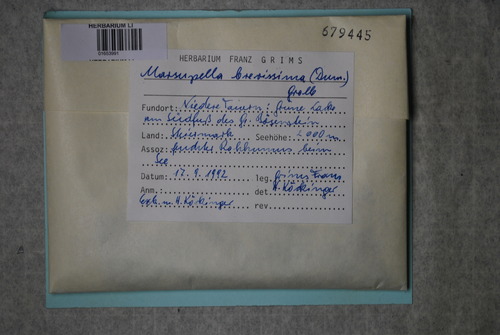 HERBARIUM LI
679445
HERBARIUM FRANZ GRIMS
Marsupella brevissima (Dum.)
Grolle
Fundort: Niedere Tauern: Grüne Lacke
am Südfuß des Gr.
Land: Steiermark Seehöhe: 2000 m
Assoz: feuchter Rohhumus beim
See
Datum: 17.9.1992 leg. Grims Franz
Anm.: det. H. Köckinger
Exk. m. H. Köckinger rev.